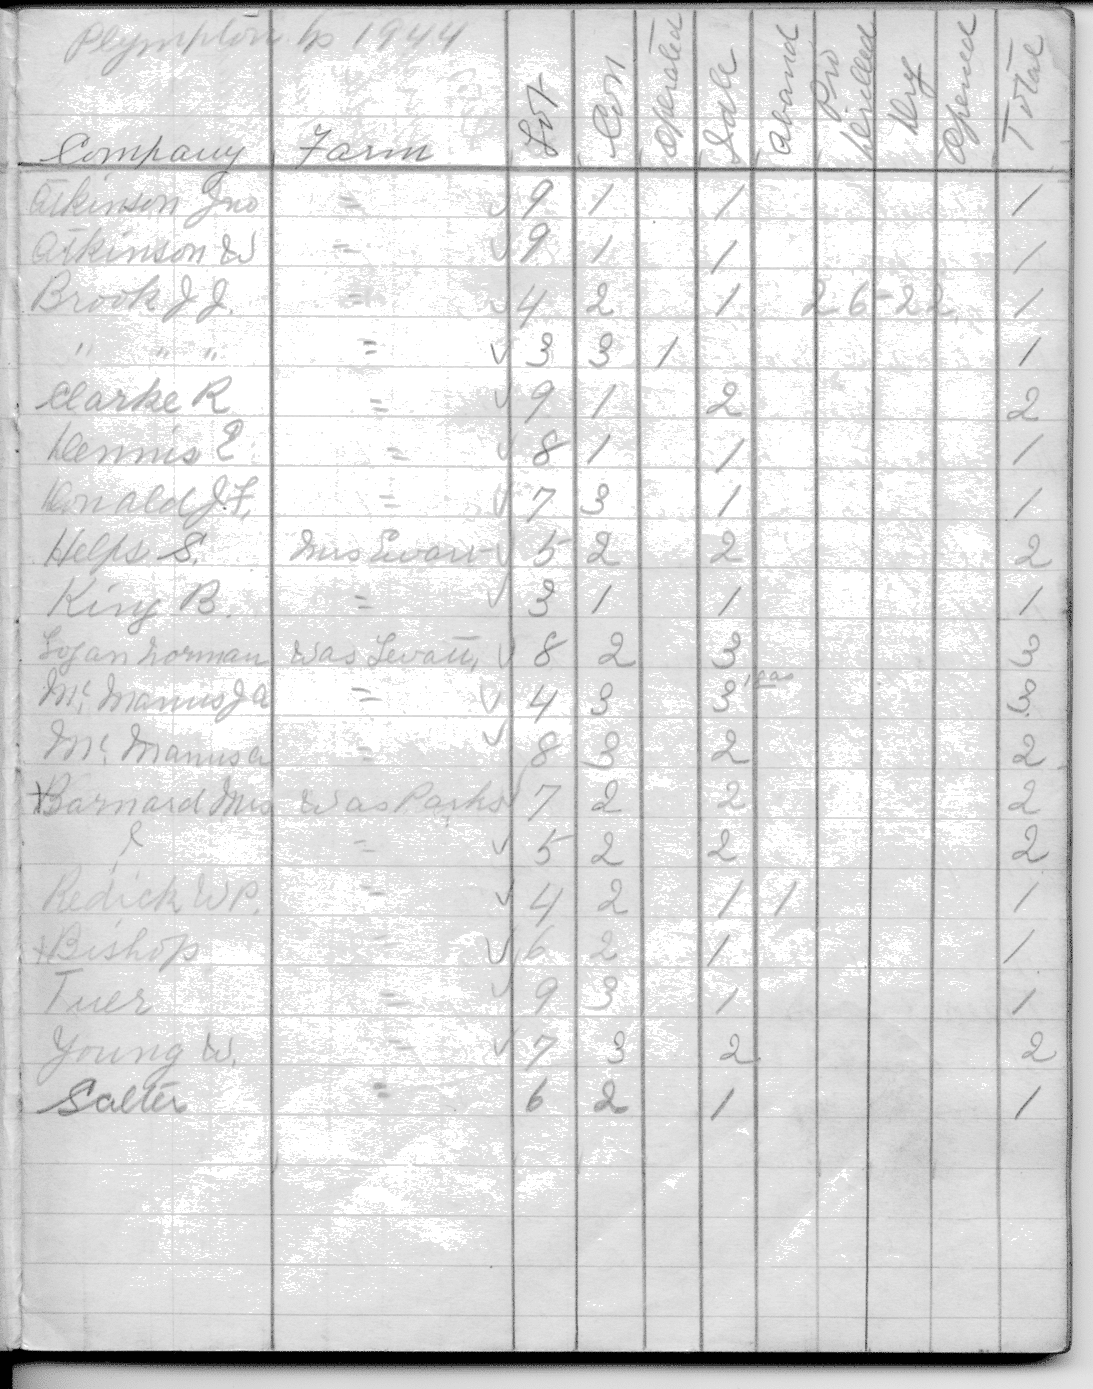 Plympton Tp 1944
Company Farm Lot Con Operated Idle Aband Pro Drilled Dry Opened Total
Atkinson Jno = ✓ 9 1 1 1
Atkinson W = ✓ 9 1 1 1
Brook J J. = ✓ 4 2 1 2 6-22 1
" " " = ✓ 3 3 1 1
Clarke R = ✓ 9 1 2 2
Dennis E. = ✓ 8 1 1 1
Donald J. F. = ✓ 7 3 1 1
Helps S. Mrs ✓ 5 2 2 2
King B. = ✓ 3 1 1 1
Logan Norman Was ✓ 8 2 3 3
Mc. Manus J A = ✓ 4 3 3 1 gas 3
Mc. Manus A = ✓ 8 3 2 2
+Barnard Mrs Was Parks ✓ 7 2 2 2
= ✓ 5 2 2 2
Redick W P. = ✓ 4 2 1 1 1
+Bishop = ✓ 6 2 1 1
Tuer = ✓ 9 3 1 1
Young W. = ✓ 7 3 2 2
Salter = 6 2 1 1